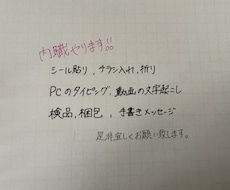 内職やります!!
シール貼り、チラシ入れ、折り
PCのタイピング、動画の文字起こし
検品、梱包、手書きメッセージ
是非宜しくお願い致します。